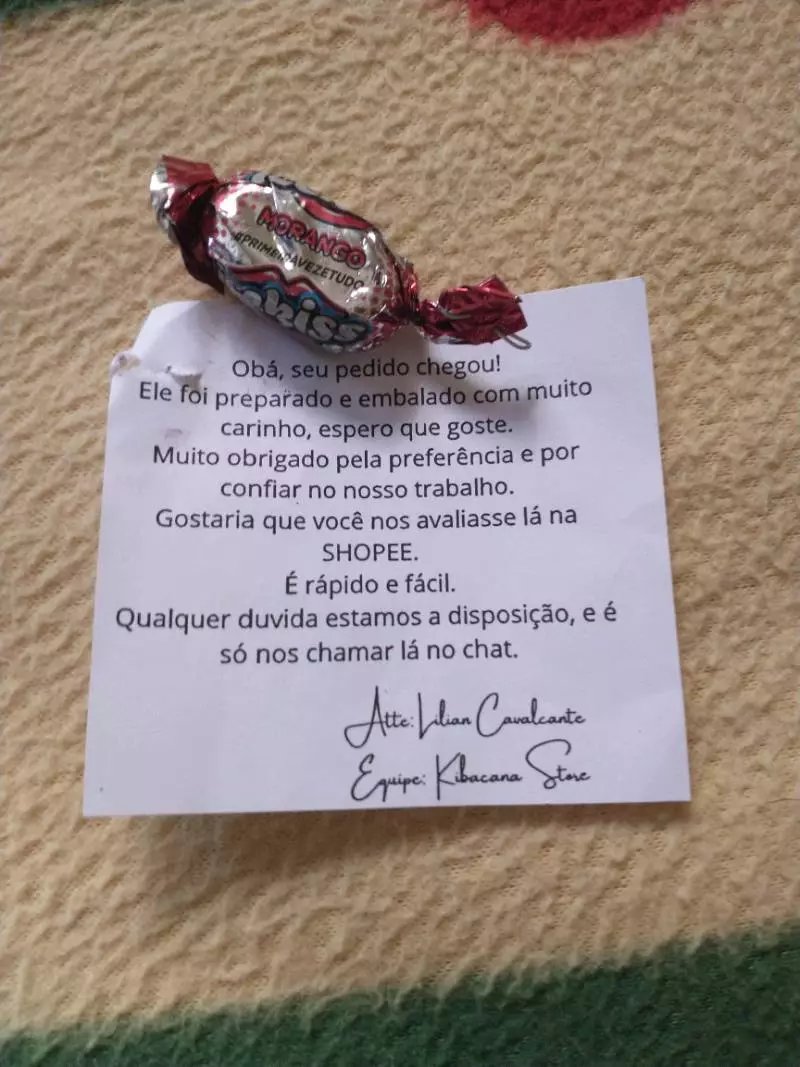 MORANGO
#PRIMEIRAVEZETUDO
kiss
Obá, seu pedido chegou!
Ele foi preparado e embalado com muito
carinho, espero que goste.
Muito obrigado pela preferência e por
confiar no nosso trabalho.
Gostaria que você nos avaliasse lá na
SHOPEE.
É rápido e fácil.
Qualquer duvida estamos a disposição, e é
só nos chamar lá no chat.
Atte: Lilian Cavalcante
Equipe: Kibacana Store